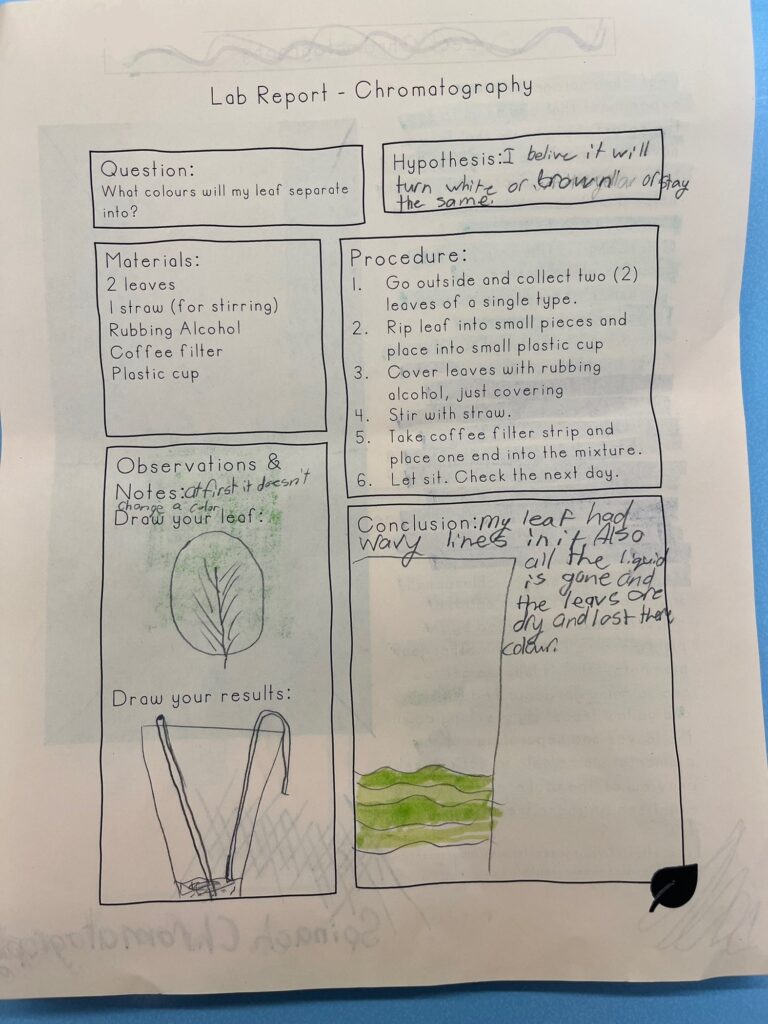 Lab Report - Chromatography
Question:
What colours will my leaf separate
into?
Hypothesis: I belive it will
turn white or brown or stay
the same.
Materials:
2 leaves
1 straw (for stirring)
Rubbing Alcohol
Coffee filter
Plastic cup
Procedure:
1. Go outside and collect two (2)
leaves of a single type.
2. Rip leaf into small pieces and
place into small plastic cup
3. Cover leaves with rubbing
alcohol, just covering
4. Stir with straw.
5. Take coffee filter strip and
place one end into the mixture.
6. Let sit. Check the next day.
Observations &
Notes: at first it doesn't
change a color
Draw your leaf:
Draw your results:
Conclusion: my leaf had
wavy lines in it. Also
all the liquid
is gone and
the leavs are
dry and lost there
colour.
Spinach Chromatography